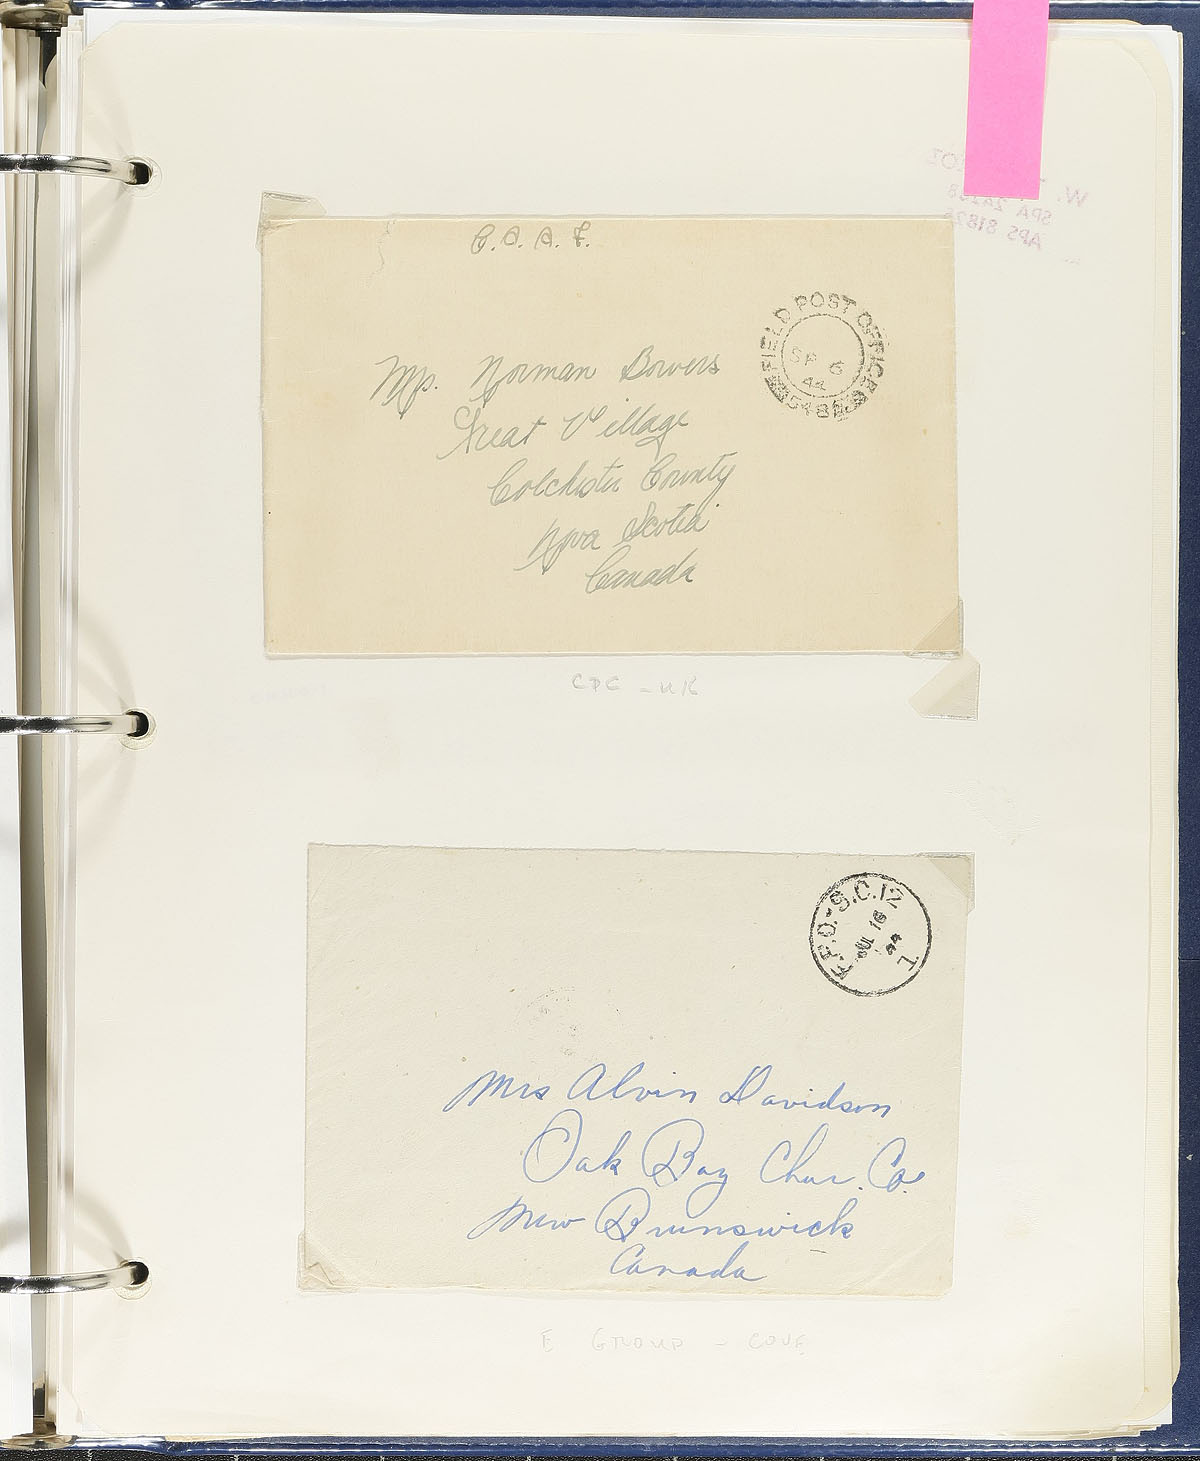 C.A.A.F.
FIELD POST OFFICE
SP 6
44
Mrs. Norman Bowers
Great Village
Colchester County
Nova Scotia
Canada
CPC - UK
F.P.O.-S.C.12
JUL 16
44
1
Mrs Alvin Davidson
Oak Bay Char. Co.
New Brunswick
Canada
E GROUP - COVE
W.
SPA
APS